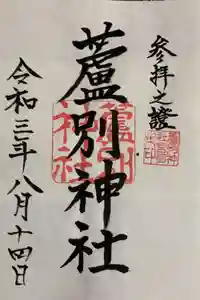 參拜之證
蘆別神社
蘆別神社
令和三年八月十四日